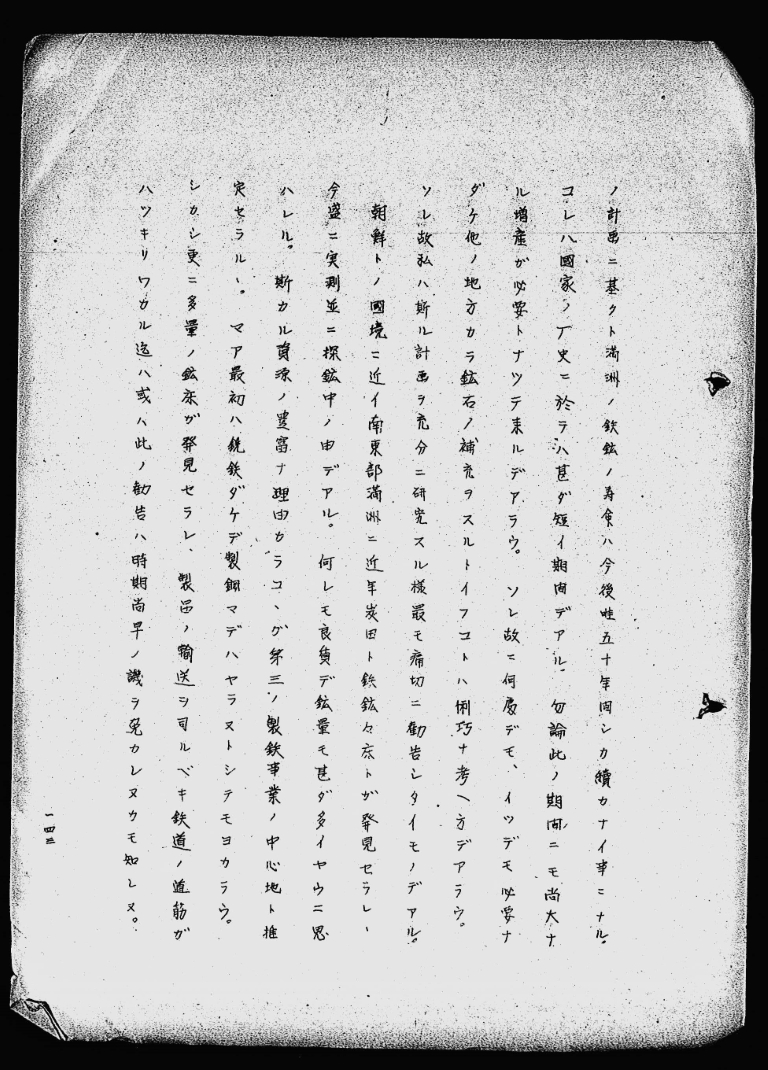 ノ計畫ニ基クト満洲ノ鉄鉱ノ寿命ハ今後唯五十年間シカ續カナイ事ニナル。
コレハ國家ノ厂史ニ於テハ甚ダ短イ期間デアル。勿論此ノ期間ニモ尚大ナ
ル増産が必要トナツテ来ルデアラウ。ソレ故ニ何處デモ、イツデモ必要ナ
ダケ他ノ地方カラ鉱石ノ補充ヲスルトイフコトハ悧巧ナ考ヘ方デアラウ。
ソレ故私ハ斯ル計畫ヲ充分ニ研究スル様最モ痛切ニ勧告シタイモノデアル。
朝鮮トノ國境ニ近イ南東部満洲ニ近年炭田ト鉄鉱々床トガ発見セラレ、
今盛ニ実測並ニ探鉱中ノ由デアル。何レモ良質デ鉱量モ甚ダ多イヤウニ思
ハレル。斯カル資源ノ豊富ナ理由カラコヽガ第三ノ製鉄事業ノ中心地ト推
定セラルヽ。マア最初ハ銑鉄ダケデ製鋼マデハヤラヌトシテモヨカラウ。
シカシ更ニ多量ノ鉱床が発見セラレ、製品ノ輸送ヲ司ルベキ鉄道ノ道筋が
ハツキリワカル迄ハ或ハ此ノ勧告ハ時期尚早ノ譏ヲ免カレヌカモ知レヌ。
一四三